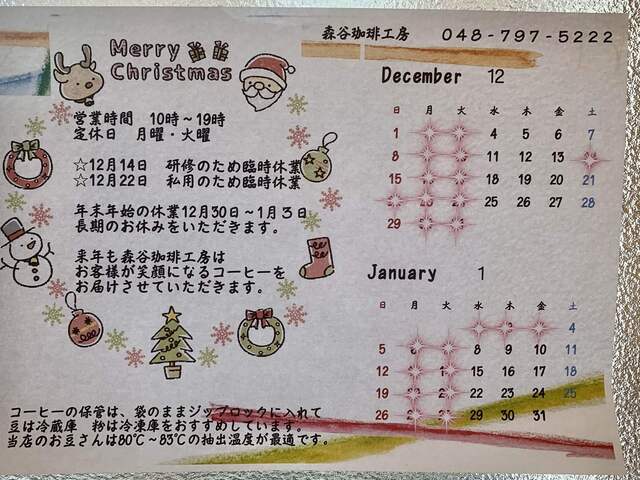 森谷珈琲工房 048-797-5222
Merry
Christmas
営業時間 10時～19時
定休日 月曜・火曜
☆12月14日 研修のため臨時休業
☆12月22日 私用のため臨時休業
年末年始の休業12月30日～1月３日
長期のお休みをいただきます。
来年も森谷珈琲工房は
お客様が笑顔になるコーヒーを
お届けさせていただきます。
December 12
日 月 火 水 木 金 土
1 4 5 6 7
8 11 12 13
15 18 19 20 21
25 26 27 28
29
January 1
日 月 火 水 木 金 土
4
5 8 9 10 11
12 15 16 17 18
19 22 23 24 25
26 29 30 31
コーヒーの保管は、袋のままジップロックに入れて
豆は冷蔵庫 粉は冷凍庫をおすすめしています。
当店のお豆さんは80℃～83℃の抽出温度が最適です。